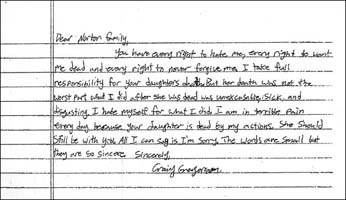 Dear Norton Family,
You have every right to hate me, every right to want
me dead and every right to never forgive me. I take full
responsibility for your daughters death. But her death was not the
worst part what I did after she was dead was unexcusable, sick, and
disgusting. I hate myself for what I did I am in terrible pain
every day because your daughter is dead by my actions. She should
still be with you. All I can say is I'm sorry. The words are small but
they are so sincere. Sincerely,
Craig